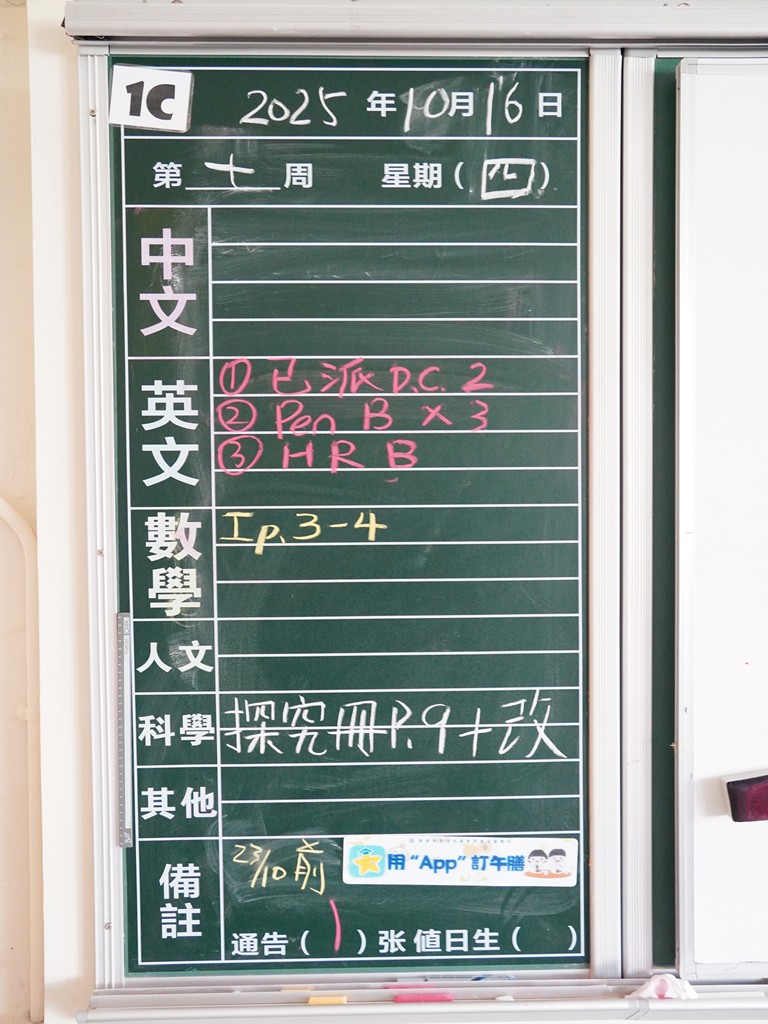 1C
2025 年 10 月 16 日
第 十 周 星期（四）
中文
英文
① 已派 D.C. 2
② Pen B x 3
③ H R B
數學
I p. 3-4
人文
科學
探究冊 P. 9 + 改
其他
備註
23/10 前
用“App”訂午膳
通告（1）张 值日生（ ）